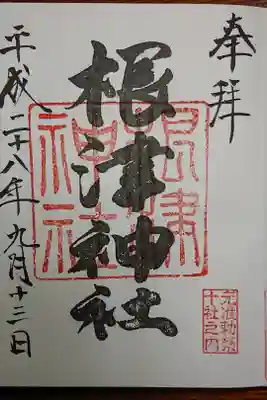 奉拝
根津神社
根津
神社
元准勅祭
十社之内
平成二十八年九月十三日